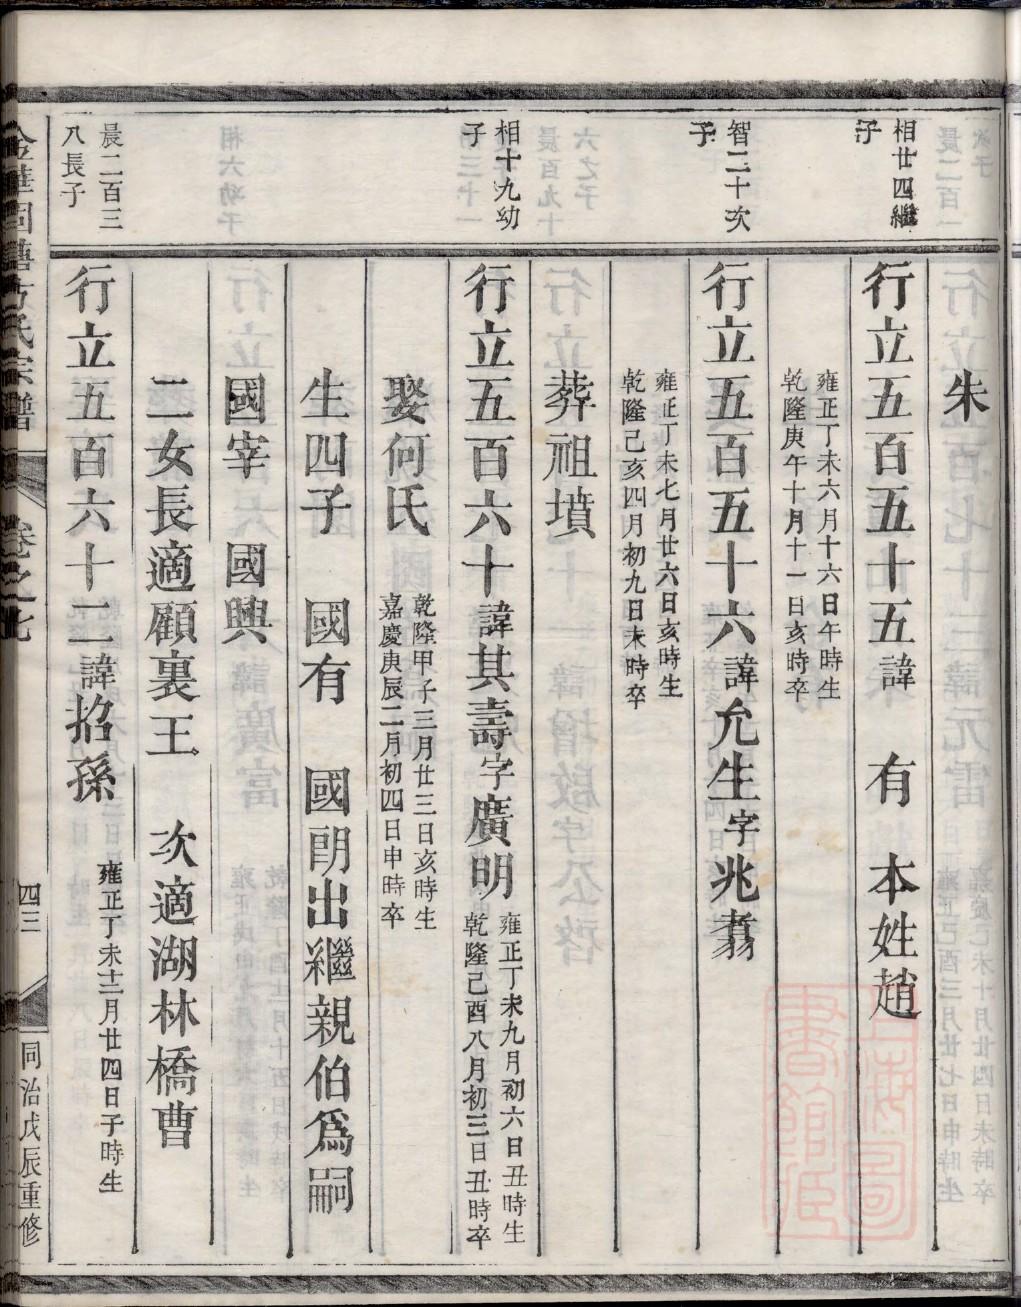 朱
相廿四繼
子
行立五百五十五諱 有 本姓趙
雍正丁未六月十六日午時生
乾隆庚午十月十一日亥時卒
智二十次
子
行立五百五十六諱允生字兆翥
雍正丁未七月廿六日亥時生
乾隆己亥四月初九日未時卒
葬祖墳
相十九幼
子
行立五百六十諱其壽字廣明
雍正丁未九月初六日丑時生
乾隆己酉八月初三日丑時卒
娶何氏
乾隆甲子三月廿三日亥時生
嘉慶庚辰二月初四日申時卒
生四子 國有 國明出繼親伯爲嗣
國宰 國興
二女長適顧裏王 次適湖林橋曹
晨二百三
八長子
行立五百六十二諱招孫
雍正丁未十二月廿四日子時生
卷之七
四三
同治戊辰重修